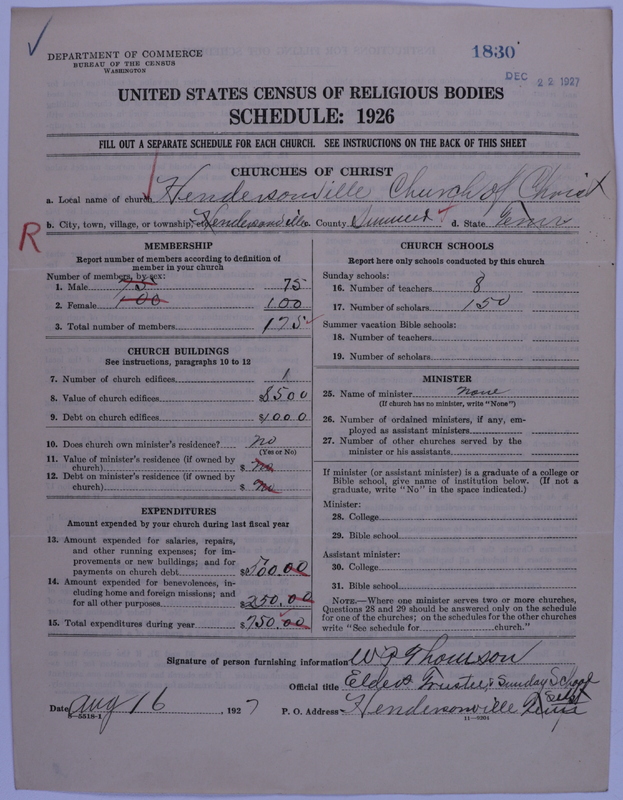 DEPARTMENT OF COMMERCE
BUREAU OF THE CENSUS
WASHINGTON
1830
DEC 22 1927
UNITED STATES CENSUS OF RELIGIOUS BODIES
SCHEDULE: 1926
FILL OUT A SEPARATE SCHEDULE FOR EACH CHURCH. SEE INSTRUCTIONS ON THE BACK OF THIS SHEET
CHURCHES OF CHRIST
a. Local name of church Hendersonville Church of Christ
b. City, town, village, or township, etc. Hendersonville c. County Sumner d. State Tenn
R
MEMBERSHIP
Report number of members according to definition of
member in your church
Number of members, by sex:
1. Male 75 75
2. Female 100 100
3. Total number of members 175
CHURCH BUILDINGS
See instructions, paragraphs 10 to 12
7. Number of church edifices 1
8. Value of church edifices $8500
9. Debt on church edifices $1000
10. Does church own minister's residence? no
(Yes or No)
11. Value of minister's residence (if owned by
church) $ no
12. Debt on minister's residence (if owned by
church) $ no
EXPENDITURES
Amount expended by your church during last fiscal year
13. Amount expended for salaries, repairs,
and other running expenses; for im-
provements or new buildings; and for
payments on church debt $500.00
14. Amount expended for benevolences, in-
cluding home and foreign missions; and
for all other purposes $250.00
15. Total expenditures during year $750.00
CHURCH SCHOOLS
Report here only schools conducted by this church
Sunday schools:
16. Number of teachers 8
17. Number of scholars 150
Summer vacation Bible schools:
18. Number of teachers
19. Number of scholars
MINISTER
25. Name of minister none
(If church has no minister, write "None")
26. Number of ordained ministers, if any, em-
ployed as assistant ministers
27. Number of other churches served by the
minister or his assistants
If minister (or assistant minister) is a graduate of a college or
Bible school, give name of institution below. (If not a
graduate, write "No" in the space indicated.)
Minister:
28. College
29. Bible school
Assistant minister:
30. College
31. Bible school
NOTE.—Where one minister serves two or more churches,
Questions 28 and 29 should be answered only on the schedule
for one of the churches; on the schedules for the other churches
write "See schedule for church."
Signature of person furnishing information W P Thomson
Official title Elder Trustee & Sunday School
Supt
Date Aug 16, 1927 P. O. Address Hendersonville Tenn
8—5518-1 11—9204